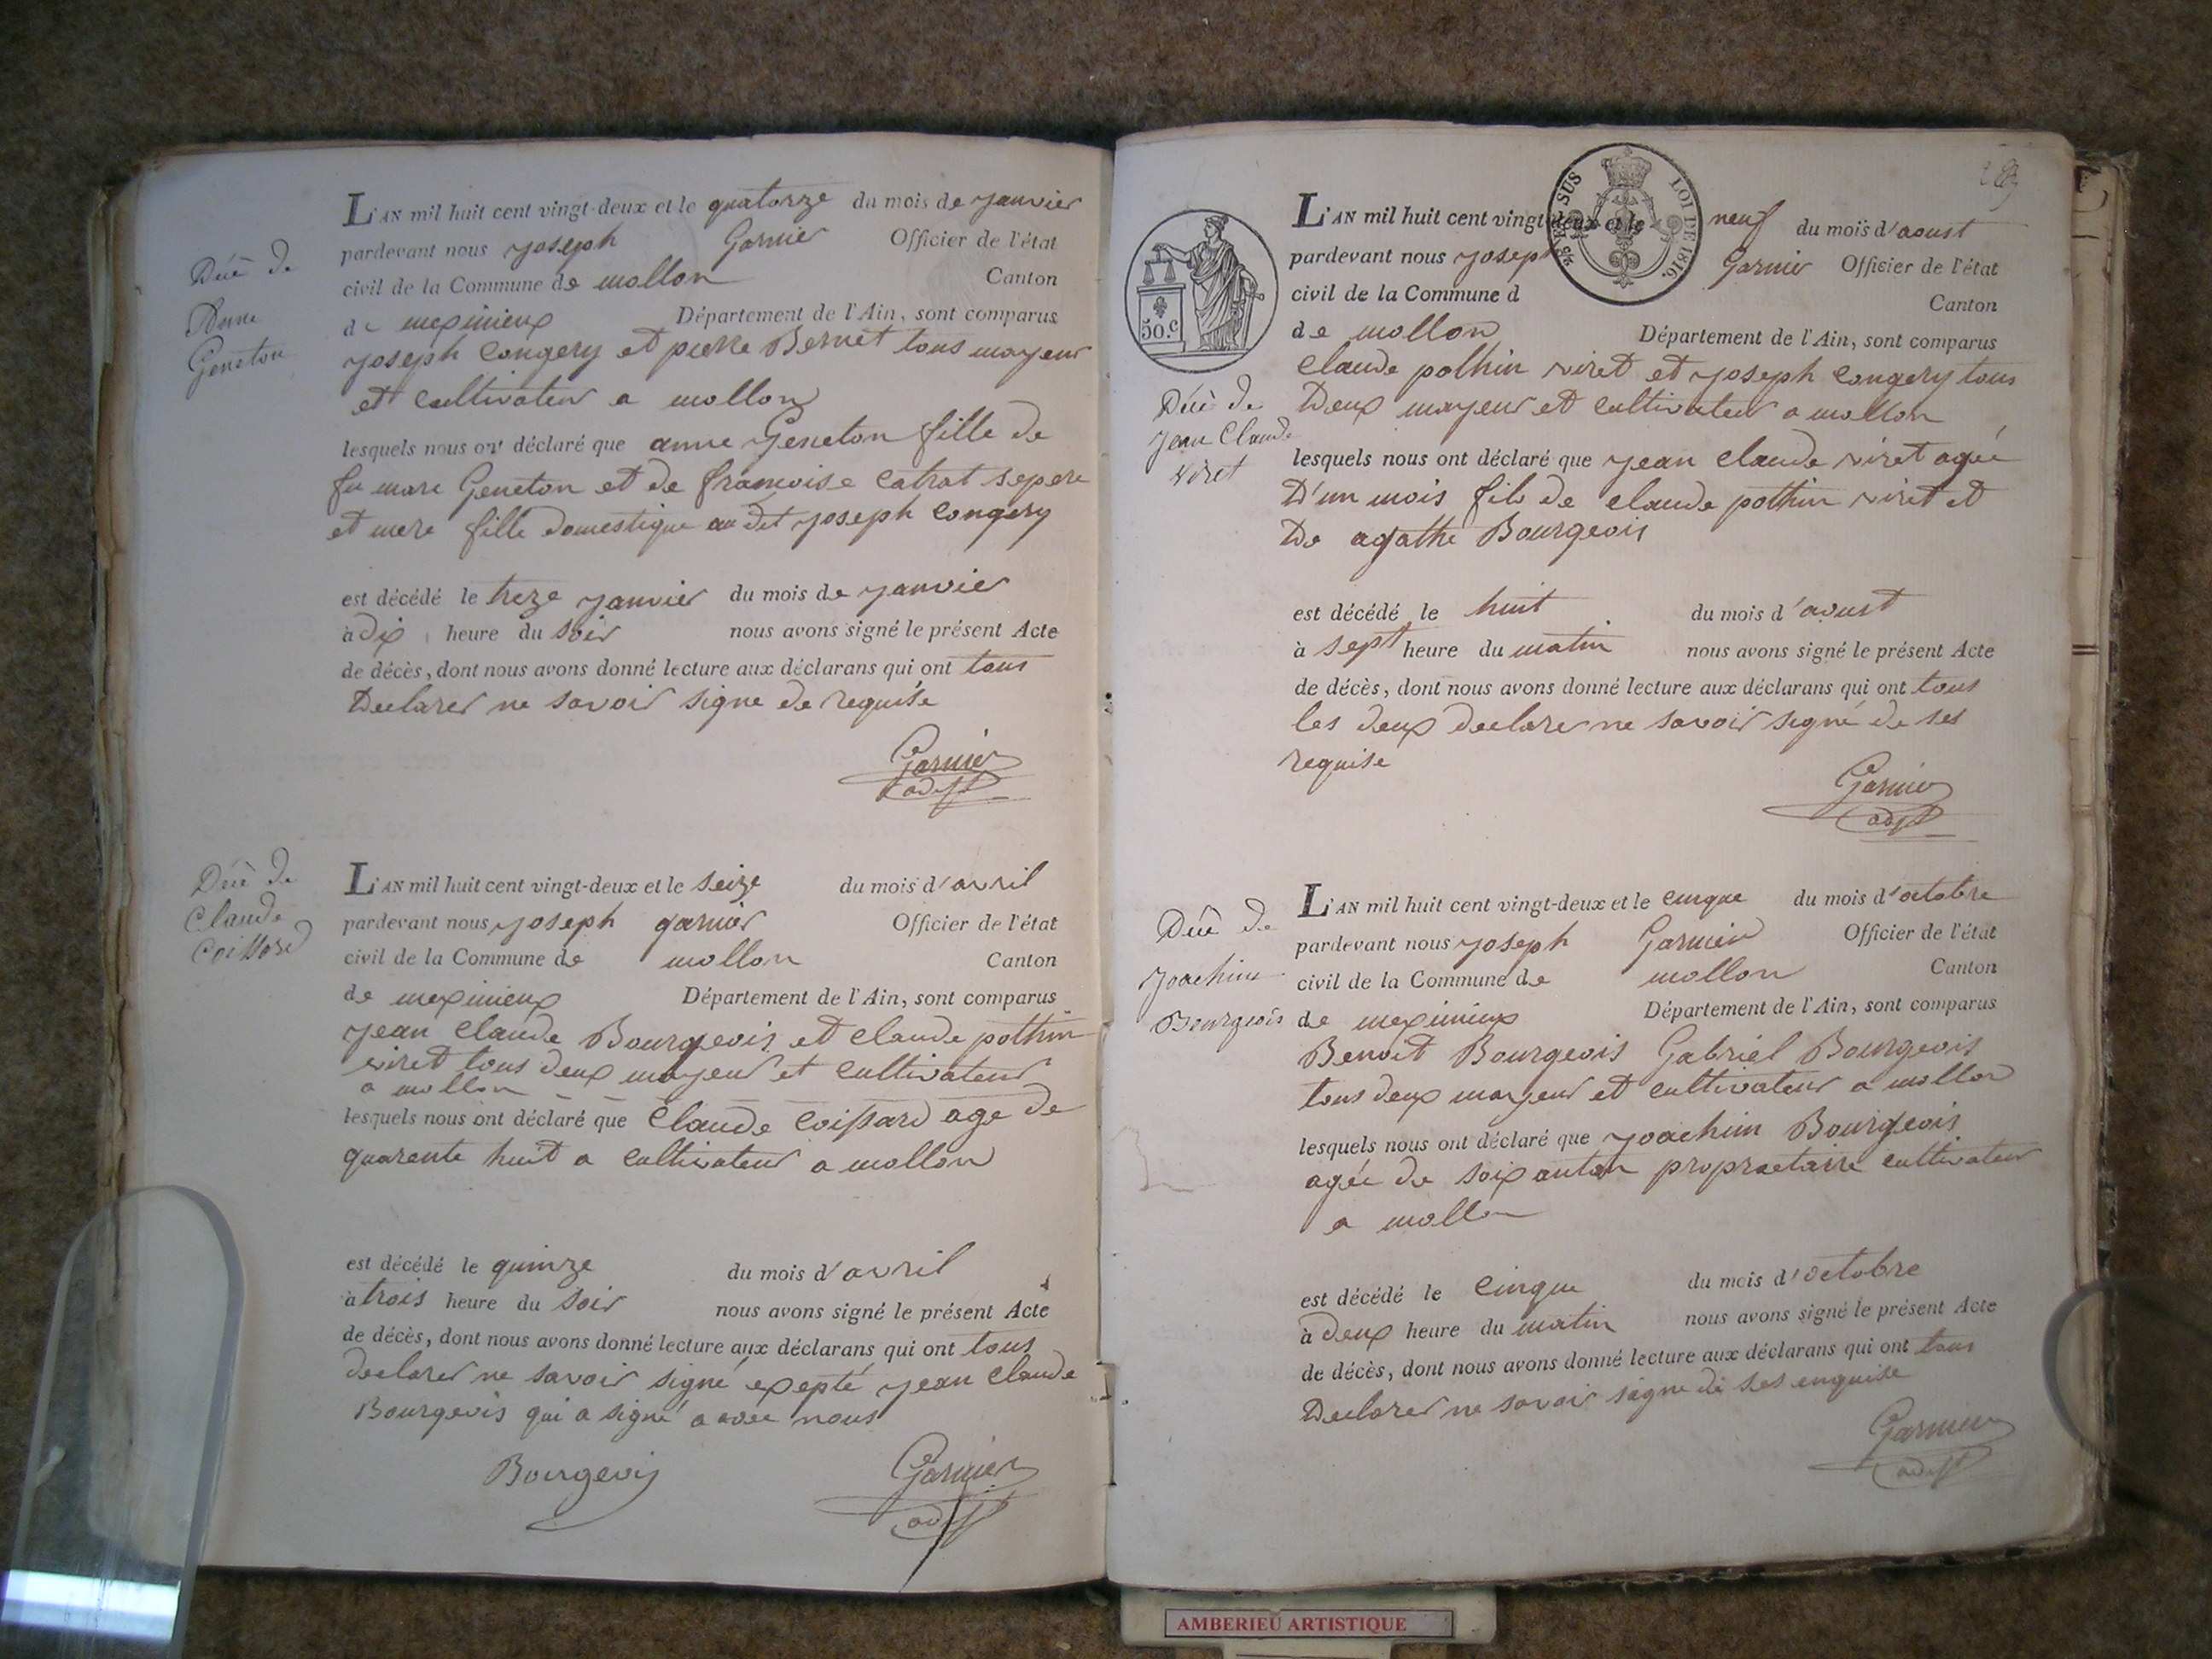 Décè de
Anne
Geneton
L'AN mil huit cent vingt-deux et le quatorze du mois de janvier
pardevant nous joseph Garnier Officier de l'état
civil de la Commune de mollon Canton
de meximieux Département de l'Ain, sont comparus
joseph Congery et pierre Bernet tous mayeur
et cultivateur a mollon
lesquels nous ont déclaré que anne Geneton fille de
feu marc Geneton et de francoise Catrat se pere
et mere fille domestique au dit joseph Congery
est décédé le treze janvier du mois de janvier
à dix heure du soir nous avons signé le présent Acte
de décès, dont nous avons donné lecture aux déclarans qui ont tous
Declarer ne savoir signe de requise
Garnier
adjt
Décè de
Claude
Coissard
L'AN mil huit cent vingt-deux et le seize du mois d'avril
pardevant nous joseph garnier Officier de l'état
civil de la Commune de mollon Canton
de meximieux Département de l'Ain, sont comparus
jean Claude Bourgeois et Claude pothin
viret tous deux mayeur et cultivateur
a mollon
lesquels nous ont déclaré que Claude Coissard age de
quarente huit a cultivateur a mollon
est décédé le quinze du mois d'avril
à trois heure du soir nous avons signé le présent Acte
de décès, dont nous avons donné lecture aux déclarans qui ont tous
declarer ne savoir signé exepté jean Claude
Bourgeois qui a signé a avec nous
Bourgeois Garnier
adjt
L'AN mil huit cent vingt-deux et le neuf du mois d'aoust
pardevant nous joseph Garnier Officier de l'état
civil de la Commune d Canton
de mollon Département de l'Ain, sont comparus
SUS LOI DE 1816.
50.C
Décè de
jean Claude
viret
Claude pothin viret et joseph Congery tous
Deux mayeur et cultivateur a mollon
lesquels nous ont déclaré que jean claude viret agée
D'un mois fils de claude pothin viret et
De agathe Bourgeois
est décédé le huit du mois d'aoust
à sept heure du matin nous avons signé le présent Acte
de décès, dont nous avons donné lecture aux déclarans qui ont tous
les deux declarer ne savoir signé de ses
requise
Garnier
adjt
Décè de
Joachim
Bourgeois
L'AN mil huit cent vingt-deux et le cinque du mois d'octobre
pardevant nous joseph Garnier Officier de l'état
civil de la Commune de mollon Canton
de meximieux Département de l'Ain, sont comparus
Benoit Bourgeois Gabriel Bourgeois
tous deux mayeur et cultivateur a mollon
lesquels nous ont déclaré que joachim Bourgeois
agée de soixantan propraetaire cultivateur
a mollon
est décédé le cinque du mois d'octobre
à deux heure du matin nous avons signé le présent Acte
de décès, dont nous avons donné lecture aux déclarans qui ont tous
Declarer ne savoir signe de ses enquise
Garnier
adjt
AMBERIEU ARTISTIQUE